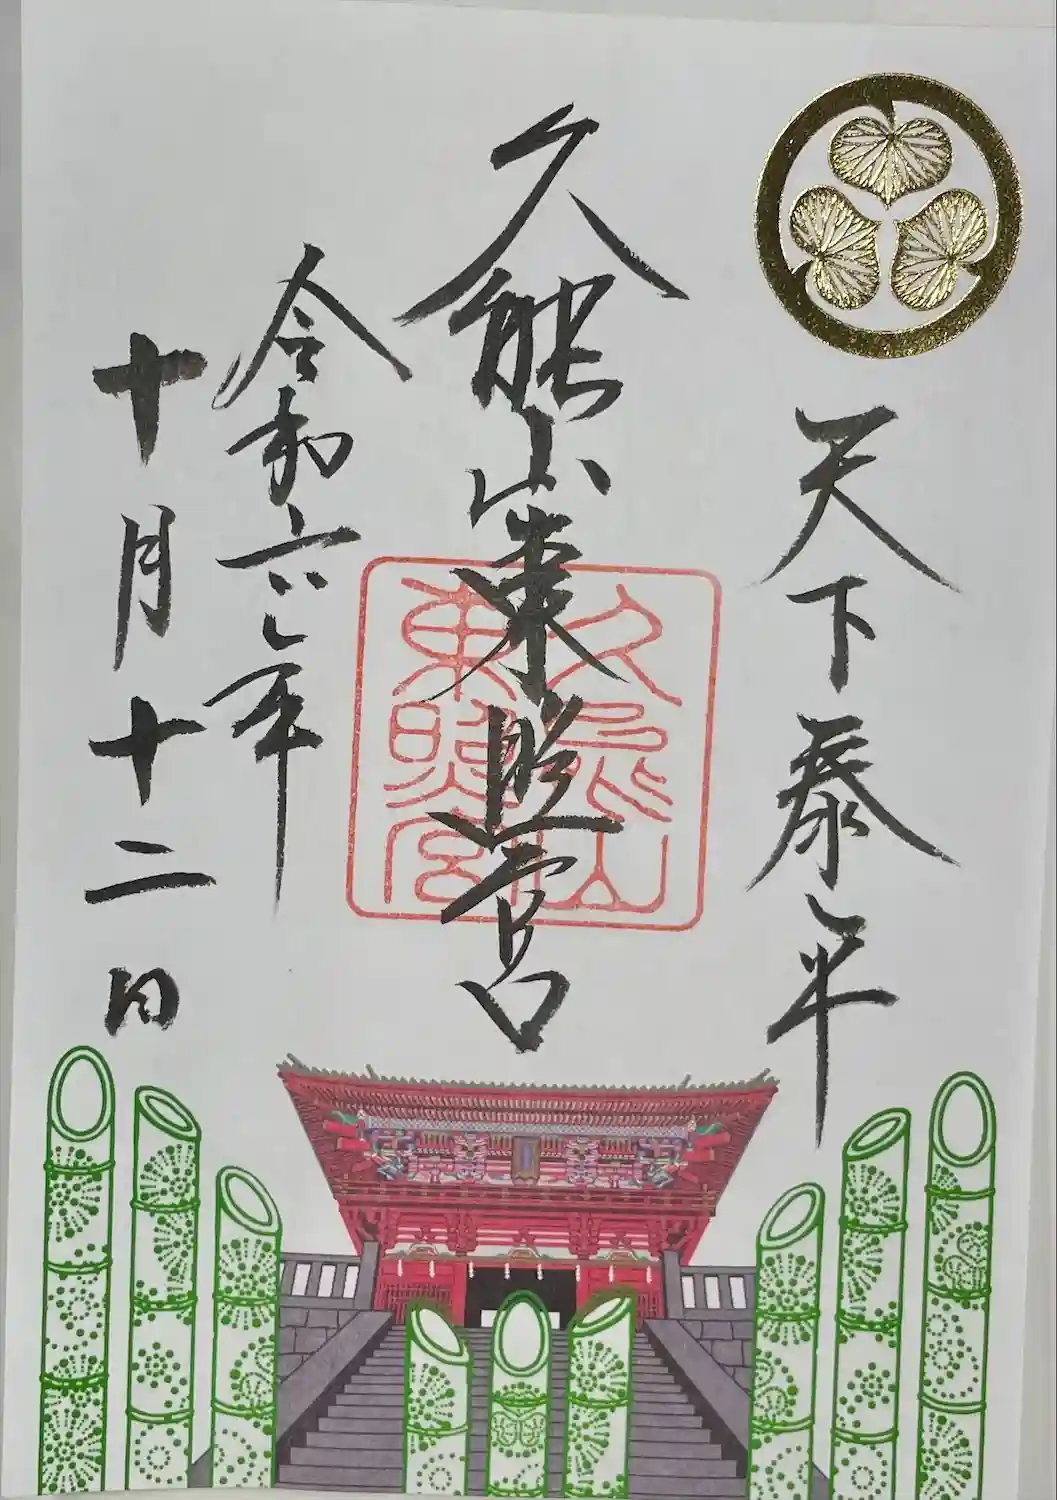 天下泰平
久能山東照宮
久能山東照宮
令和六年
十月十二日